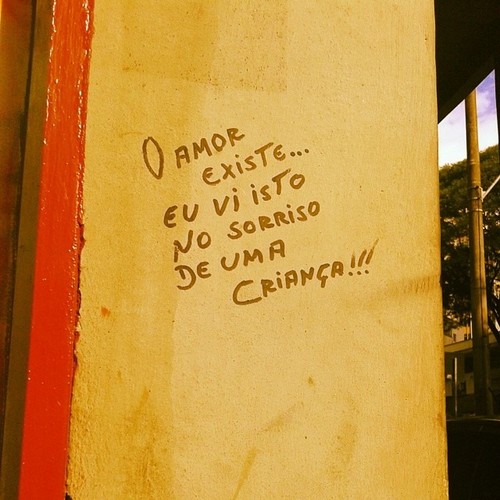 O AMOR
EXISTE...
EU Vi iSTO
NO SORRISO
DE UMA
CRiANÇA!!!